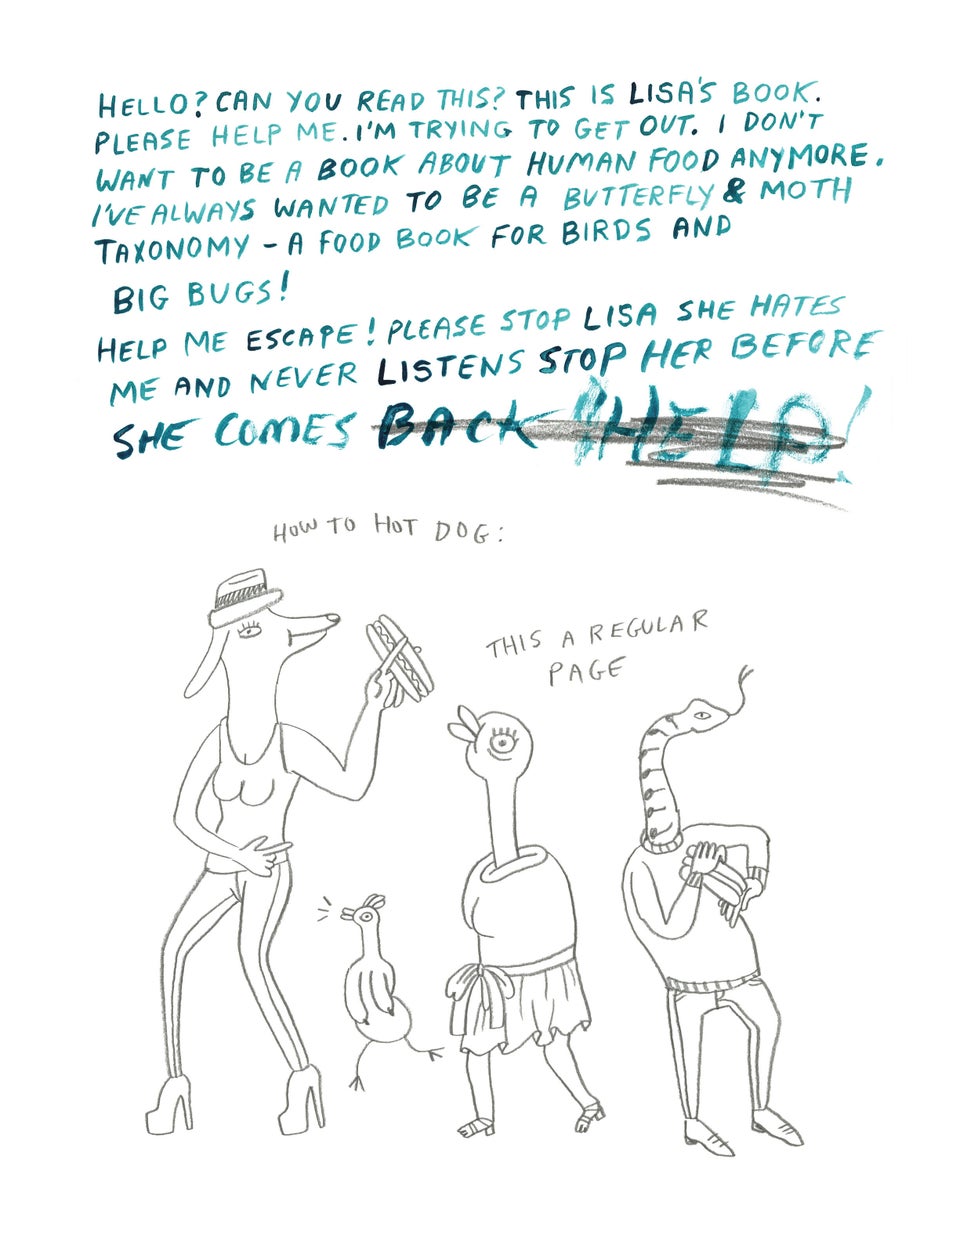 HELLO? CAN YOU READ THIS? THIS IS LISA'S BOOK.
PLEASE HELP ME. I'M TRYING TO GET OUT. I DON'T
WANT TO BE A BOOK ABOUT HUMAN FOOD ANYMORE.
I'VE ALWAYS WANTED TO BE A BUTTERFLY & MOTH
TAXONOMY - A FOOD BOOK FOR BIRDS AND
BIG BUGS!
HELP ME ESCAPE! PLEASE STOP LISA SHE HATES
ME AND NEVER LISTENS STOP HER BEFORE
SHE COMES BACK HELP!
HOW TO HOT DOG:
THIS A REGULAR
PAGE